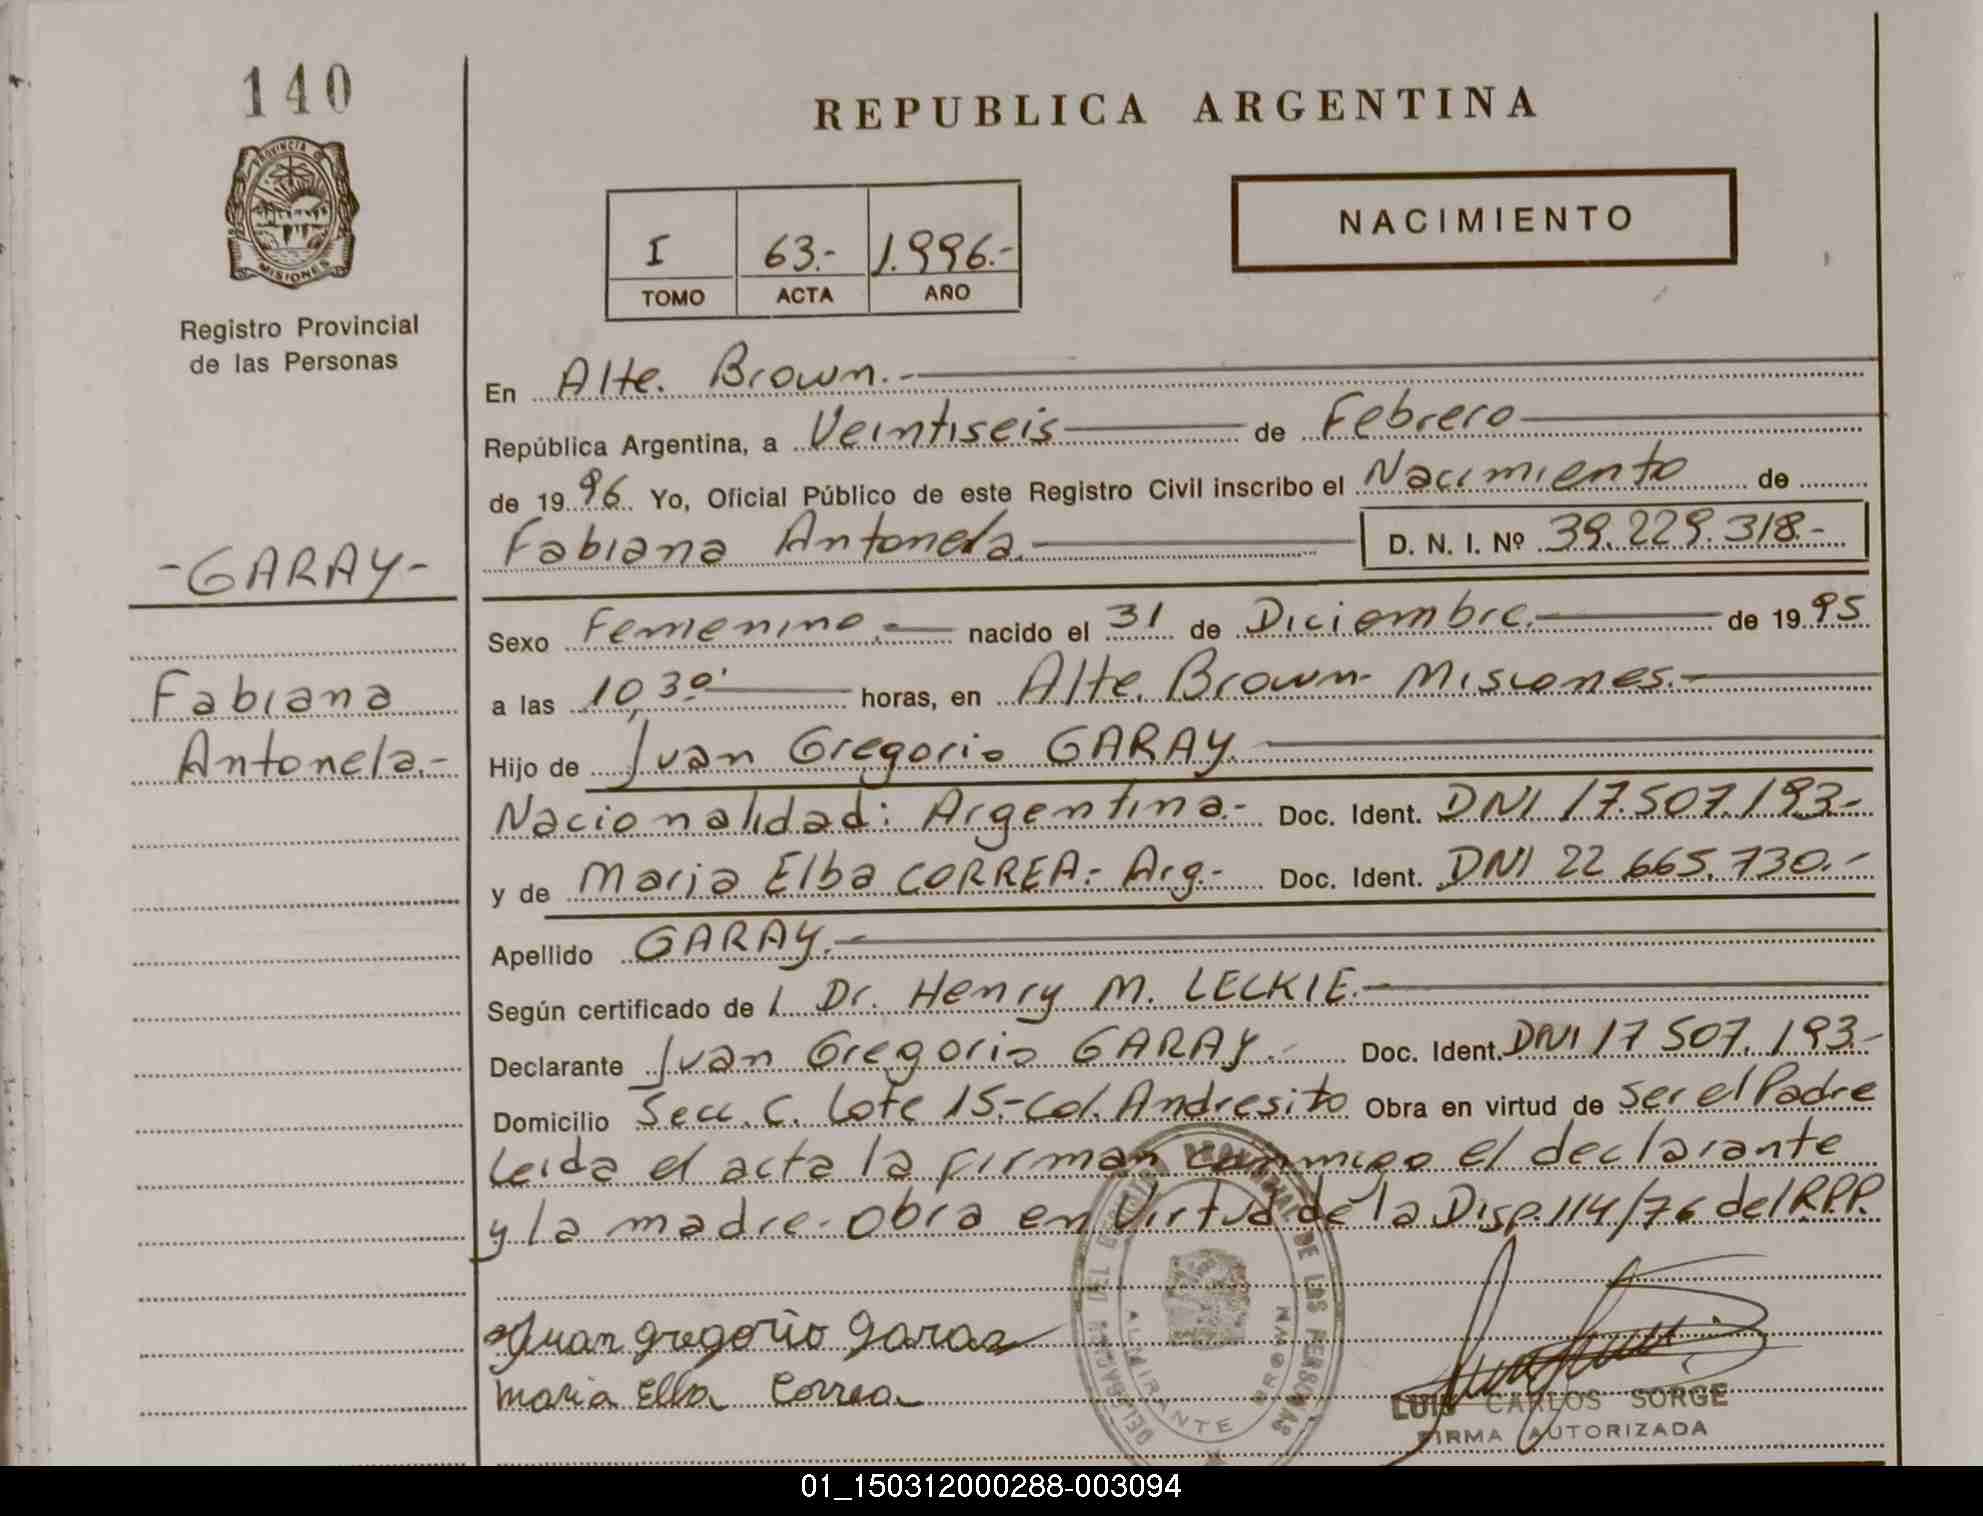 140
REPUBLICA ARGENTINA
PROVINCIA DE
MISIONES
NACIMIENTO
I 63.- 1.996.-
TOMO ACTA AÑO
Registro Provincial
de las Personas
En Alte. Brown.-
República Argentina, a Veintiseis de Febrero
de 1996 Yo, Oficial Público de este Registro Civil inscribo el Nacimiento de
Fabiana Antonela. D. N. I. Nº 39.229.318.-
-GARAY-
Sexo Femenino.- nacido el 31 de Diciembre. de 1995
Fabiana
a las 10,30' horas, en Alte. Brown- Misiones.-
Antonela.-
Hijo de Juan Gregorio GARAY.
Nacionalidad: Argentina.- Doc. Ident. DNI 17.507.193.-
y de Maria Elba CORREA.- Arg.- Doc. Ident. DNI 22.665.730.-
Apellido GARAY.-
Según certificado de l Dr. Henry M. LECKIE.-
Declarante Juan Gregorio GARAY.- Doc. Ident. DNI 17 507.193.-
Domicilio Secc. C. Lote 15.-Col. Andresito Obra en virtud de Ser el Padre
Leida el acta la firman conmigo el declarante
y la madre.- Obra en Virtud de la Disp. 114/76 del R.P.P.
Juan gregorio garay
maria Elba Correa
PROVINCIAL DE LAS PERSONAS
ALMIRANTE BROWN
LUIS CARLOS SORGE
FIRMA AUTORIZADA
01_150312000288-003094